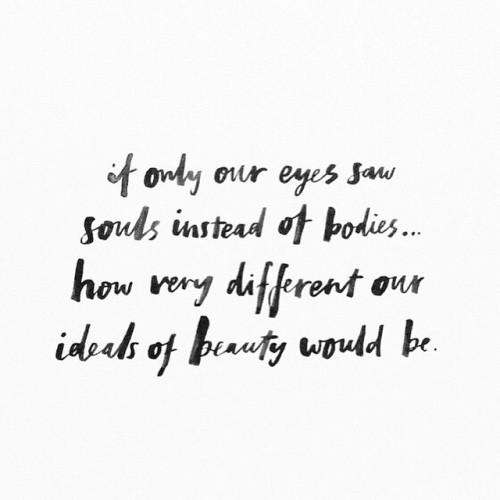 if only our eyes saw
souls instead of bodies...
how very different our
ideals of beauty would be.